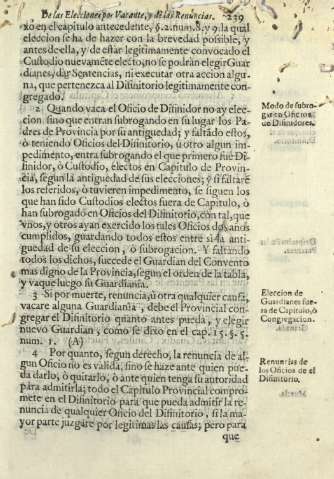 De las Elecciones por Vacante, y de las Renuncias. 239
xo en el capitulo antecedente, §.2.num.8. y o la qual
eleccion se ha de hazer con la brevedad possible, y
antes de ella, y de estàr legitimamente convocado el
Custodio nuevamẽte electo, no se podràn elegir Guar
dianes, dàr Sentencias, ni executar otra accion algu-
na, que pertenezca al Difinitorio legitimamente con-
gregado.
2 Quando vaca el Oficio de Difinidor no ay elec-
cion, sino que entran subrogando en su lugar los Pa-
dres de Provincia por su antiguedad; y faltãdo estos,
ò teniendo Oficio del Difinitorio, ù otro algun im-
pedimento, entra subrogando el que primero fuè Di-
finidor, ò Custodio, electos en Capitulo de Provin-
cia, segun la antiguedad de sus elecciones; y si faltarẽ
los referidos, ò tuvieren impedimento, se siguen los
que han sido Custodios electos fuera de Capitulo, ò
han subrogado en Oficios del Difinitorio, con tal, que
vnos, y otros ayan exercido los tales Oficios dos años
cumplidos, guardando todos estos entre si la anti-
guedad de su eleccion, ò subrogacion. Y faltando
todos los dichos, succede el Guardian del Convento
mas digno de la Provincia, segun el orden de la tabla,
y vaque luego su Guardiania.
3 Si por muerte, renuncia, ù otra qualquier causa,
vacare alguna Guardiania, debe el Provincial con-
gregar el Difinitorio quanto antes pueda, y elegir
nuevo Guardian, como se dixo en el cap. 15. §. 5.
num. 1. (A)
4 Por quanto, segun derecho, la renuncia de al-
gun Oficio no es valida, sino se haze ante quien pue-
da darlo, ò quitarlo, ò ante quien tenga su autoridad
para admitirla; todo el Capitulo Provincial compro-
mete en el Difinitorio para que pueda admitir la re-
nuncia de qualquier Oficio del Difinitorio, si la ma-
yor parte juzgàre por legitimas las causas; pero para
que
Modo de subro-
gar en Oficios
de Difinidores.
Eleccion de
Guardianes fue-
ra de Capitulo, ò
Congregacion.
Renuncias de
los Oficios de el
Difinitorio.